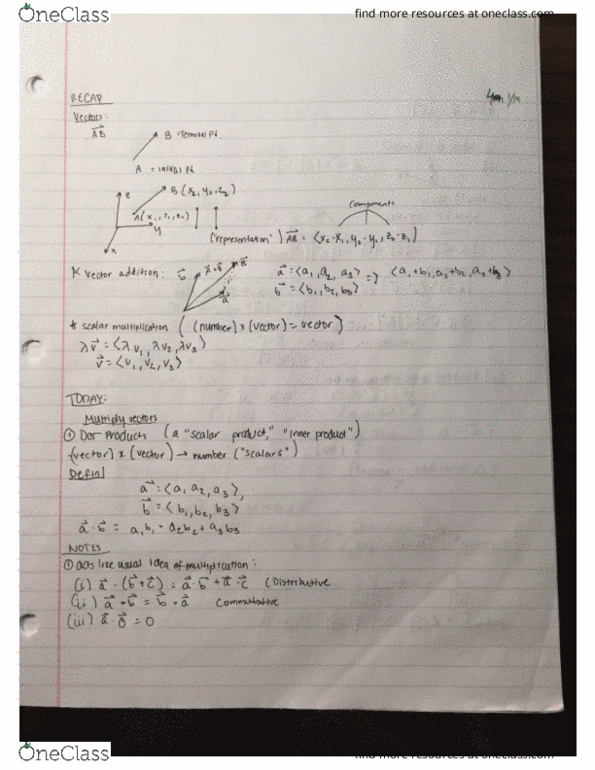 OneClass
find more resources at oneclass.com
RECAP
Vectors:
AB⃗
B = Terminal Pt.
A = initial Pt.
z
B (x₂, y₂, z₂)
A(x₁, y₁, z₁)
y
x
Components
("representation") AB⃗ = ⟨x₂-x₁, y₂-y₁, z₂-z₁⟩
* Vector addition: b⃗ a⃗+b⃗ b⃗ a⃗ a⃗ = ⟨a₁, a₂, a₃⟩ => ⟨a₁+b₁, a₂+b₂, a₃+b₃⟩
b⃗ = ⟨b₁, b₂, b₃⟩
* scalar multiplication ((number) x (vector) = vector)
λv⃗ = ⟨λv₁, λv₂, λv₃⟩
v⃗ = ⟨v₁, v₂, v₃⟩
TODAY:
Multiply vectors
① Dot Products (a "scalar product," "inner product")
(vector) x (vector) → number ("scalars")
Defin
a⃗ = ⟨a₁, a₂, a₃⟩,
b⃗ = ⟨b₁, b₂, b₃⟩
a⃗ · b⃗ = a₁b₁ + a₂b₂ + a₃b₃
NOTES
① acts like usual idea of multiplication:
(i) a⃗ · (b⃗ + c⃗) = a⃗ · b⃗ + a⃗ · c⃗ (Distributive
(ii) a⃗ · b⃗ = b⃗ · a⃗ Commutative
(iii) a⃗ · 0⃗ = 0
OneClass
find more resources at oneclass.com